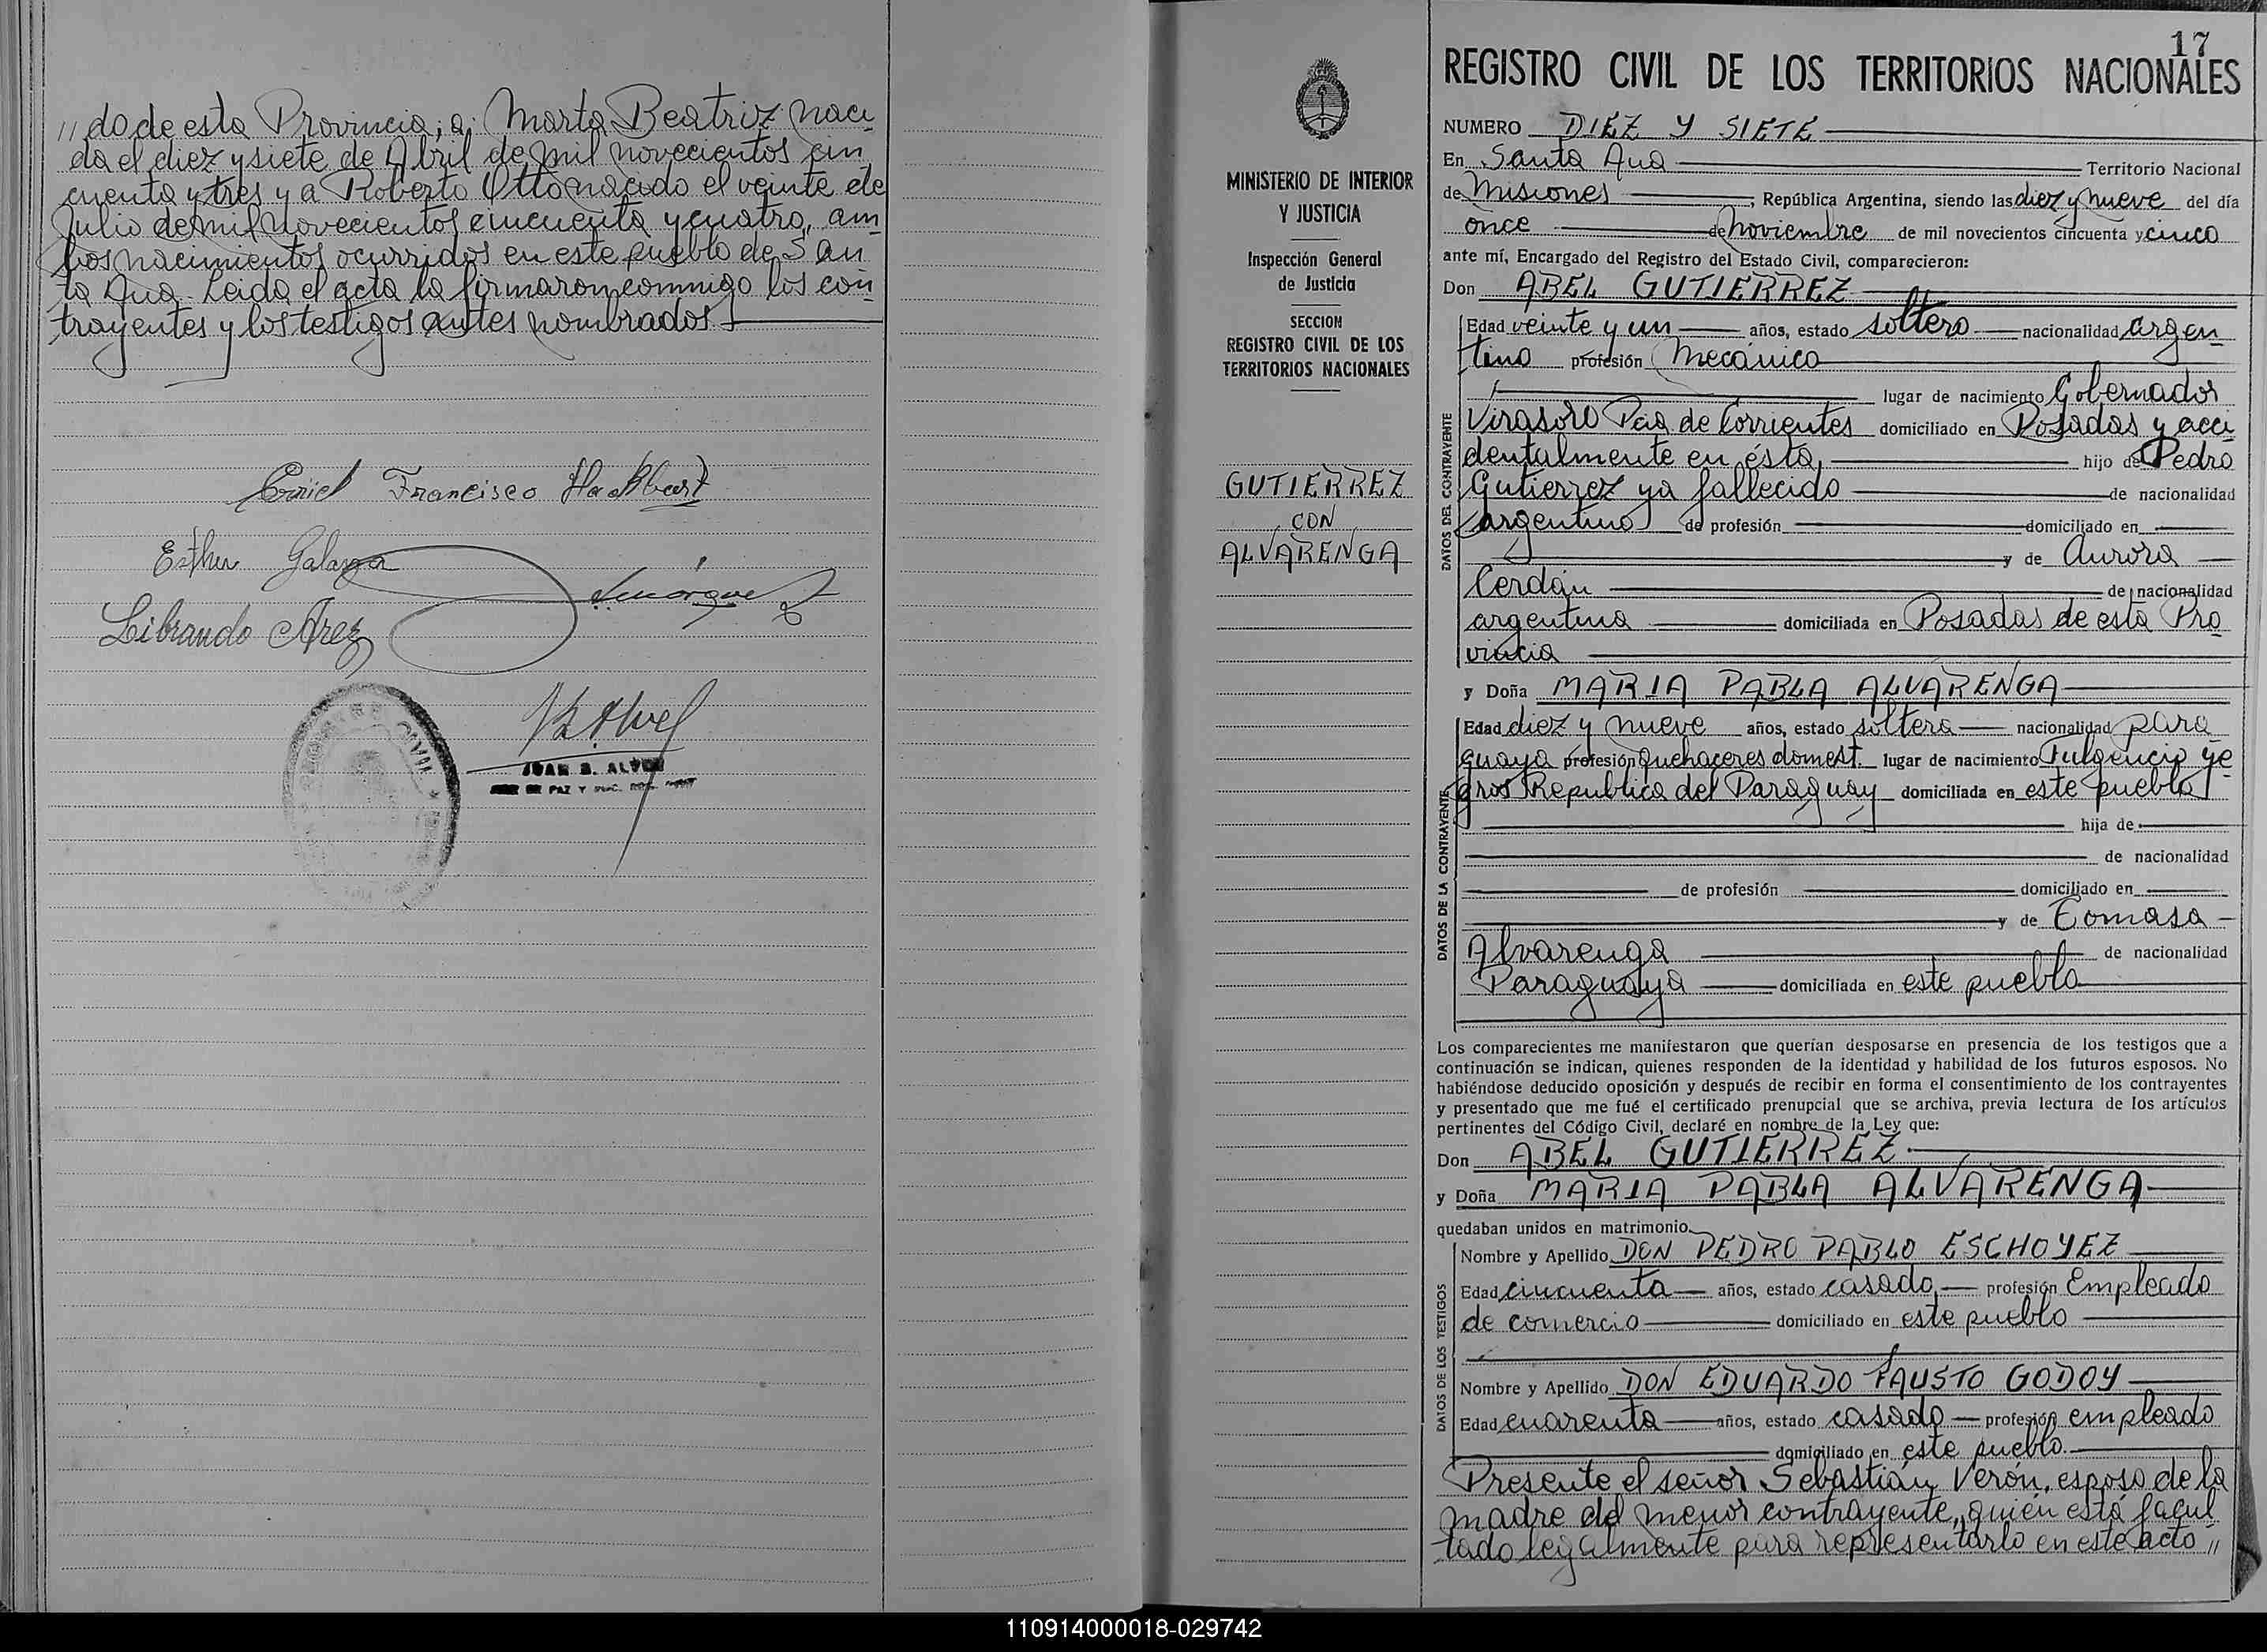 // do de esta Provincia; a: Marta Beatriz naci
da el diez y siete de Abril de mil novecientos cin
cuenta y tres y a Roberto Otto nacido el veinte de
Julio de mil novecientos cincuenta y cuatro, am
bos nacimientos ocurridos en este pueblo de San
ta Ana. Leida el acta la firmaron conmigo los con
trayentes y los testigos antes nombrados.
Francisco Hackbart
Esther Galarza
Librando Arez
JUAN B. ALVEZ
17
REGISTRO CIVIL DE LOS TERRITORIOS NACIONALES
MINISTERIO DE INTERIOR
Y JUSTICIA
Inspección General
de Justicia
SECCION
REGISTRO CIVIL DE LOS
TERRITORIOS NACIONALES
GUTIERREZ
CON
ALVARENGA
NUMERO DIEZ Y SIETE
En Santa Ana Territorio Nacional
de Misiones, República Argentina, siendo las diez y nueve del día
once de Noviembre de mil novecientos cincuenta y cinco
ante mí, Encargado del Registro del Estado Civil, comparecieron:
Don ABEL GUTIERREZ
DATOS DEL CONTRAYENTE
Edad veinte y un años, estado soltero nacionalidad argen
tino profesión Mecánico
lugar de nacimiento Gobernador
Virasoro Pcia. de Corrientes domiciliado en Posadas y acci
dentalmente en ésta, hijo de Pedro
Gutierrez ya fallecido de nacionalidad
argentino de profesión domiciliado en
y de Aurora
Cerdán de nacionalidad
argentina domiciliada en Posadas de esta Pro
vincia
y Doña MARIA PABLA ALVARENGA
DATOS DE LA CONTRAYENTE
Edad diez y nueve años, estado soltera nacionalidad para
guaya profesión quehaceres domest. lugar de nacimiento Fulgencio Ye
gros Republica del Paraguay domiciliada en este pueblo
hija de
de nacionalidad
de profesión domiciliado en
y de Tomasa
Alvarenga de nacionalidad
Paraguaya domiciliada en este pueblo
Los comparecientes me manifestaron que querían desposarse en presencia de los testigos que a
continuación se indican, quienes responden de la identidad y habilidad de los futuros esposos. No
habiéndose deducido oposición y después de recibir en forma el consentimiento de los contrayentes
y presentado que me fué el certificado prenupcial que se archiva, previa lectura de los artículos
pertinentes del Código Civil, declaré en nombre de la Ley que:
Don ABEL GUTIERREZ
y Doña MARIA PABLA ALVARENGA
quedaban unidos en matrimonio.
DATOS DE LOS TESTIGOS
Nombre y Apellido DON PEDRO PABLO ESCHOYEZ
Edad cincuenta años, estado casado, profesión Empleado
de comercio domiciliado en este pueblo
Nombre y Apellido DON EDUARDO FAUSTO GODOY
Edad cuarenta años, estado casado profesión empleado
domiciliado en este pueblo.
Presente el señor Sebastián Verón, esposo de la
madre del menor contrayente, quién está facul
tado legalmente para representarlo en este acto //
110914000018-029742